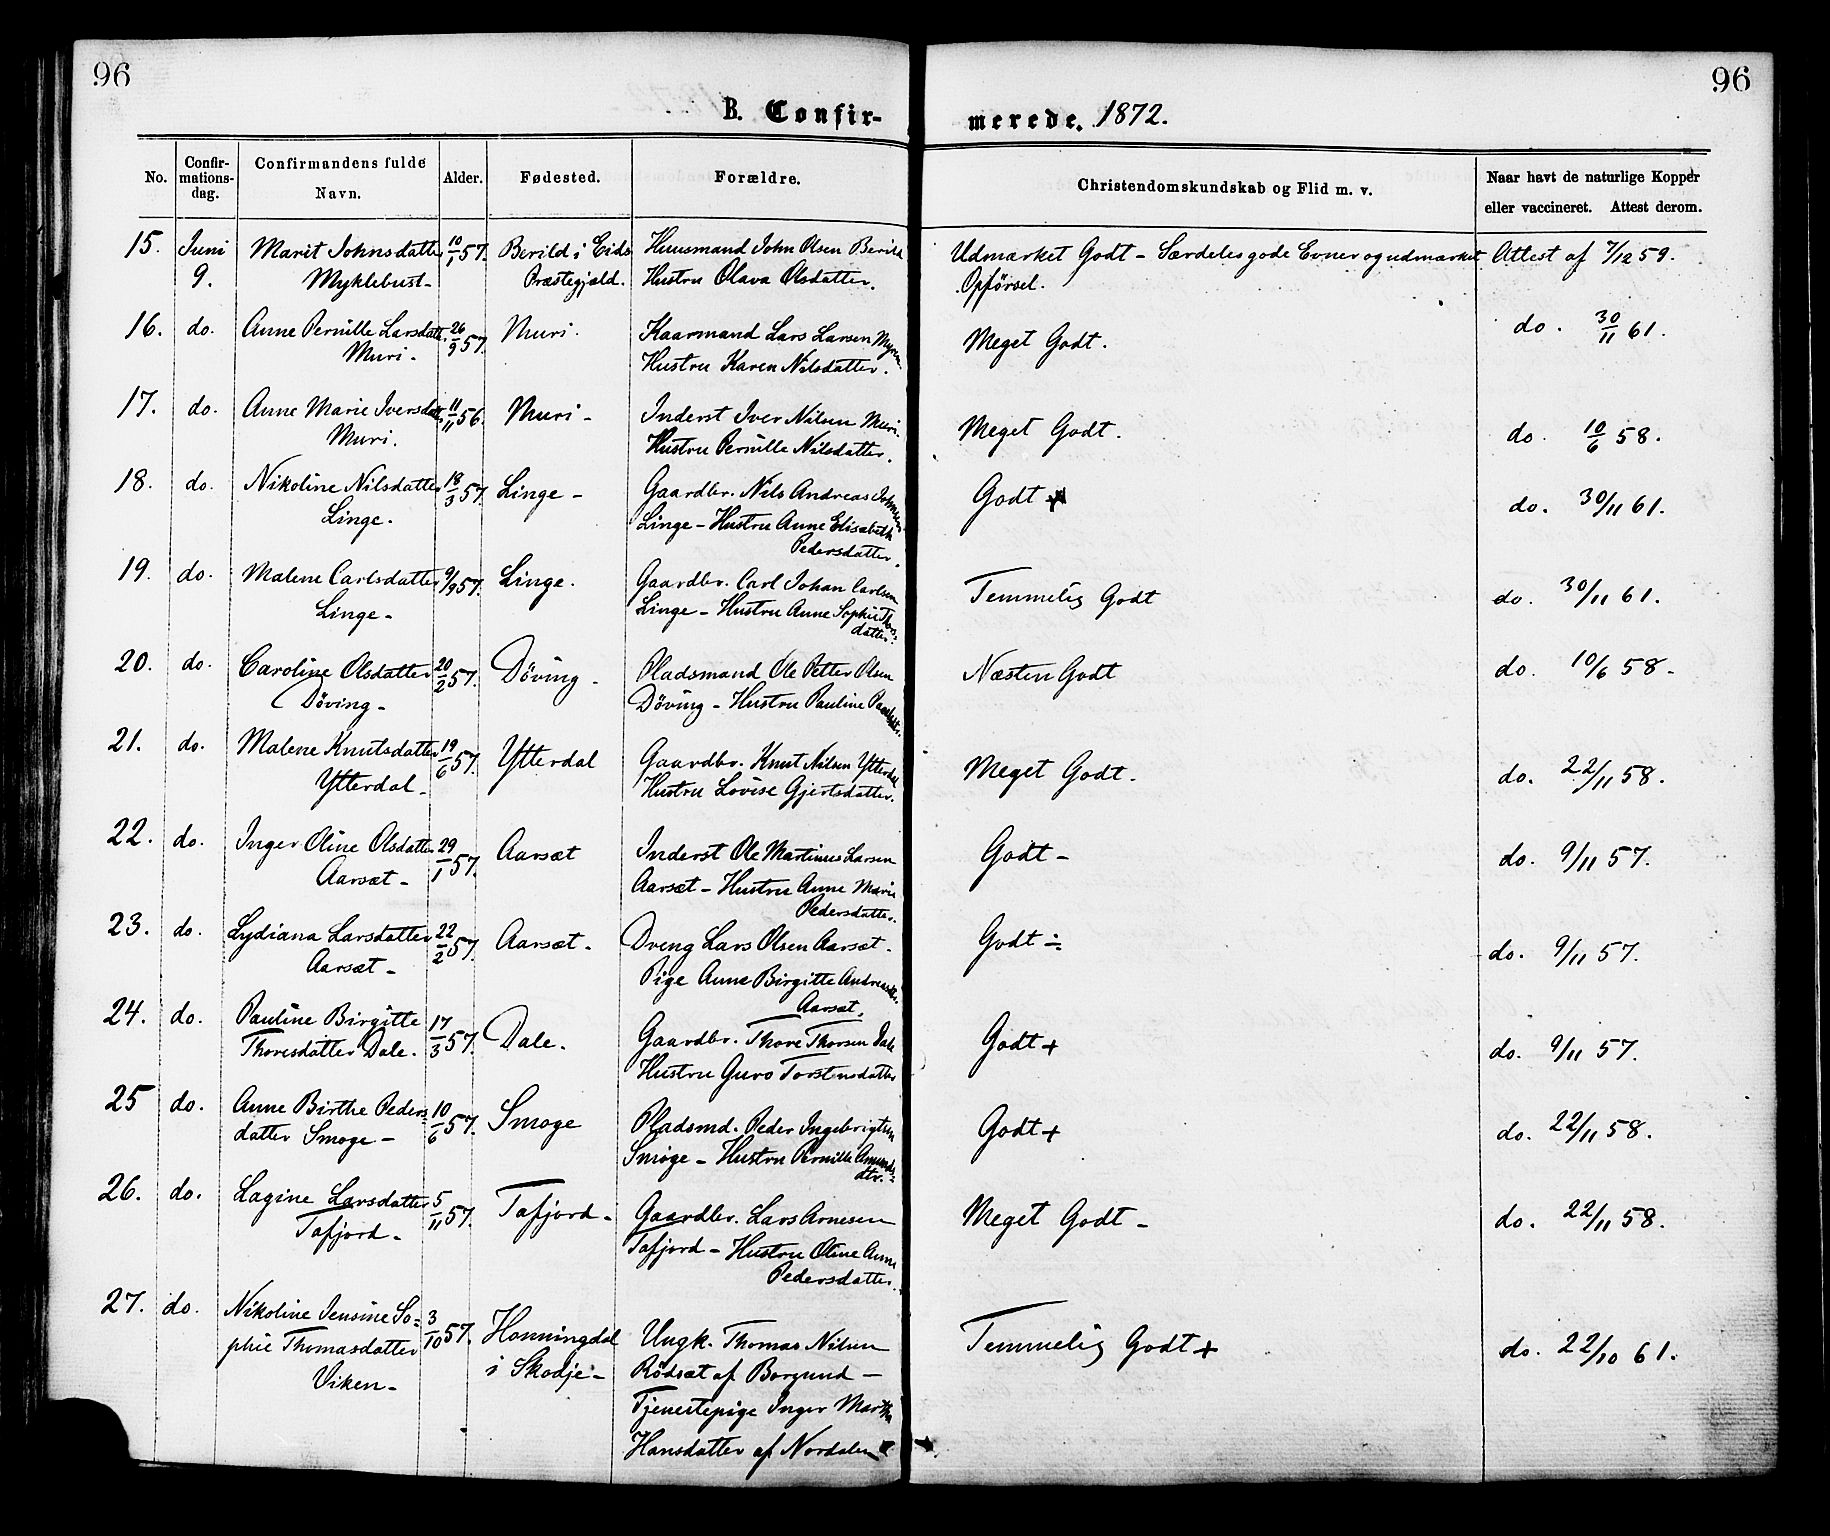 96
96
B. Confir-
merede. 1872.
No.
Confir-
mations-
dag.
Confirmandens fulde
Navn.
Alder.
Fødested.
Forældre.
Christendomskundskab og Flid m. v.
Naar havt de naturlige Kopper
eller vaccineret. Attest derom.
15. Juni Marit Johnsdatter 10/1 57. Berild i Eids Huusmand John Olsen Berild Udmarket Godt – Særdeles gode Evner og udmærket Attest af 7/12 59.
9. Myklebust – Præstegjæld. Hustru Olava Olsdatter. Opførsel.
16. do. Anne Pernille Larsdatt. 26/9 57. Muri. Kaarmand Lars Larsen Myren Meget Godt. do. 30/11 61.
Muri. Hustru Karen Nilsdatter.
17. do. Anne Marie Iversdatt. 11/11 56. Muri – Inderst Iver Nilsen Muri. Meget Godt. do. 10/6 58.
Muri. Hustru Pernille Nilsdatter.
18. do. Nikoline Nilsdatter 18/3 57. Linge – Gaardbr. Nils Andreas Johnsen Godt + do. 30/11 61.
Linge. Linge – Hustru Anne Elisabeth
Pedersdatter.
19. do. Malene Carlsdatter 9/9 57. Linge. Gaardbr. Carl Johan Carlsen Temmelig Godt do. 30/11 61.
Linge – Linge – Hustru Anne Sophie
datter
20. do. Caroline Olsdatter 20/2 57. Döving – Pladsmand Ole Petter Olsen Næsten Godt do. 10/6 58 –
Döving – Döving – Hustru Pauline
21. do. Malene Knutsdatter 19/6 57. Ytterdal Gaardbr. Knut Nilsen Ytterdal Meget Godt. do. 22/11 58.
Ytterdal – Hustru Lovise Gjertsdatter.
22. do. Inger Oline Olsdatter 29/1 57. Aarsæt Inderst Ole Martinus Larsen Godt – do. 9/11 57.
Aarsæt – Aarsæt – Hustru Anne Marie
Pedersdatter.
23. do. Lydiana Larsdatter 22/2 57. Aarsæt. Dreng Lars Olsen Aarsæt. Godt ÷ do. 9/11 57.
Aarsæt – Pige Anne Birgitte Andreasdtr.
Aarsæt.
24. do. Pauline Birgitte 17/3 57. Dale. Gaardbr. Thore Thorsen Dale Godt + do. 9/11 57.
Thoresdatter Dale. Hustru Guro Torstensdatter
25 do. Anne Birthe Peders= 10/6 57. Smoge Pladsmd. Peder Ingebrigtsen Godt + do. 22/11 58.
datter Smoge – Smoge – Hustru Pernille Amunds=
dtr.
26. do. Lagine Larsdatter 5/11 57. Tafjord – Gaardbr. Lars Arnesen Meget Godt – do. 22/11 58.
Tafjord – Tafjord – Hustru Oline Anne
Pedersdatter.
27. do. Nikoline Jensine So= 3/10 57. Honningdal Ungk. Thomas Nilsen Temmelig Godt + do. 22/10 61.
phie Thomasdatter i Skodje – Rödsæt af Borgund –
Viken – Tjenestepige Inger Martha
Hansdatter af Nordalen